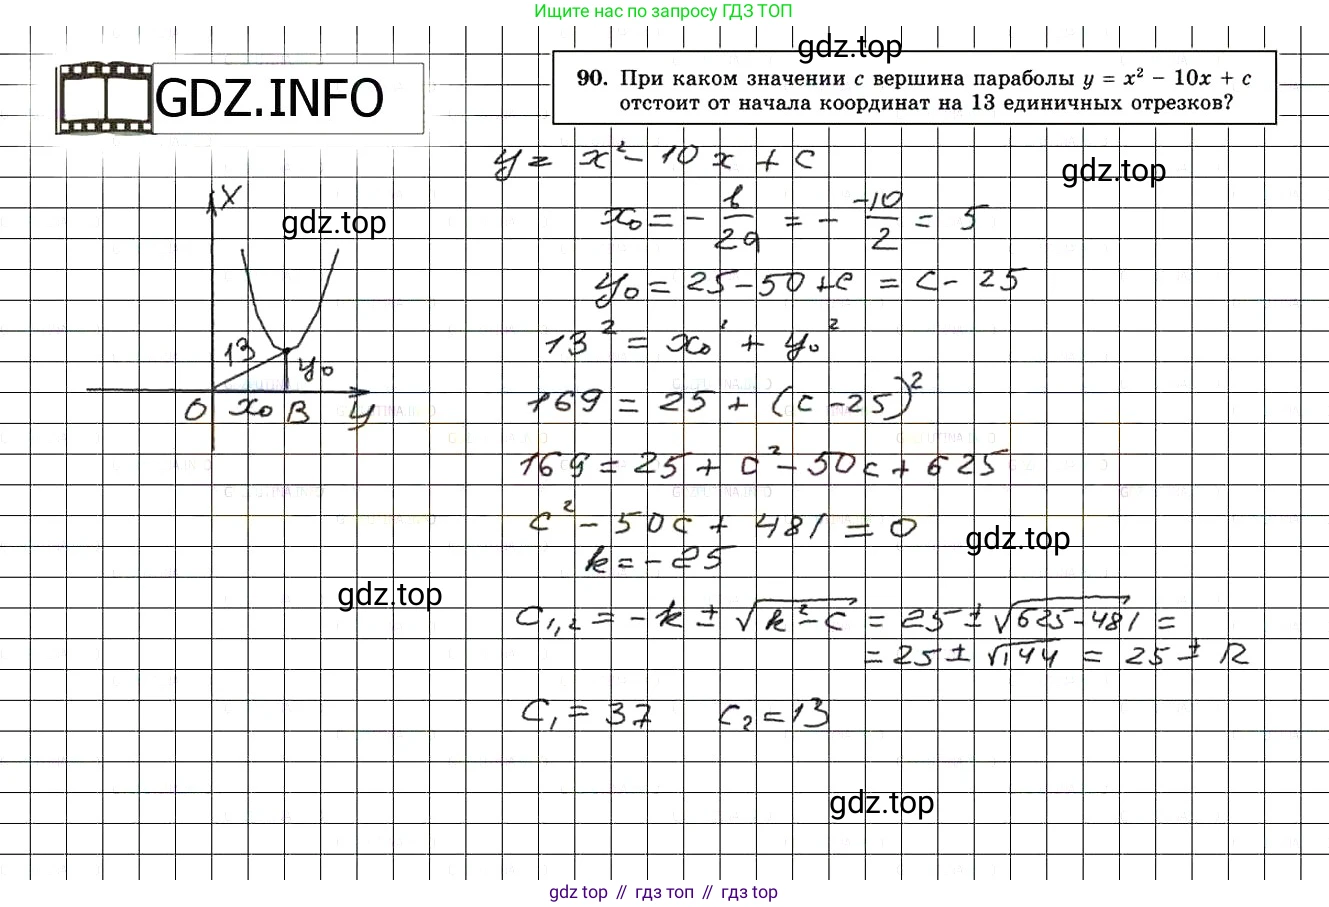 Ищите нас по запросу ГДЗ ТОП
gdz.top
GDZ.INFO
90. При каком значении c вершина параболы y = x² − 10x + c
отстоит от начала координат на 13 единичных отрезков?
y = x² - 10x + c
gdz.top
X
gdz.top
x₀ = - b/2a = - -10/2 = 5
y₀ = 25 - 50 + c = c - 25
13² = x₀² + y₀²
13
y₀
O x₀ B y
169 = 25 + (c - 25)²
169 = 25 + c² - 50c + 625
c² - 50c + 481 = 0
gdz.top
k = -25
gdz.top
C₁,₂ = -k ± √(k² - c) = 25 ± √(625-481) =
= 25 ± √144 = 25 ± 12
C₁ = 37 C₂ = 13
gdz.top
gdz top // гдз топ // gdz top